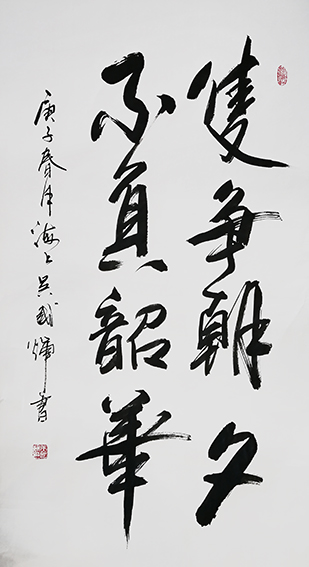 隻争朝夕
不負韶華
庚子春月海上吴國輝書